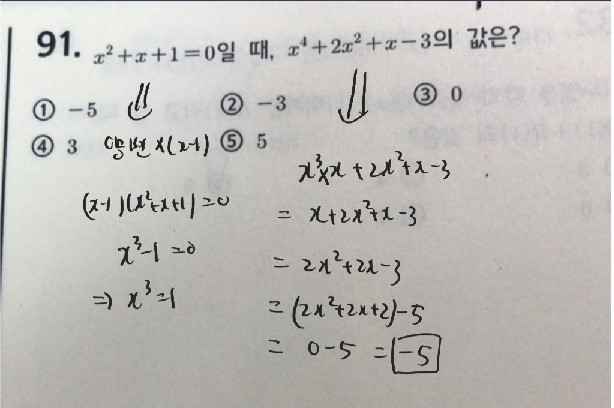 91. x²+x+1=0일 때, x⁴+2x²+x-3의 값은?
① -5 ② -3 ③ 0
④ 3 ⑤ 5
양변 ×(x-1)
(x-1)(x²+x+1)=0
x³-1=0
⇒ x³=1
x³×x+2x²+x-3
= x+2x²+x-3
= 2x²+2x-3
= (2x²+2x+2)-5
= 0-5 = -5